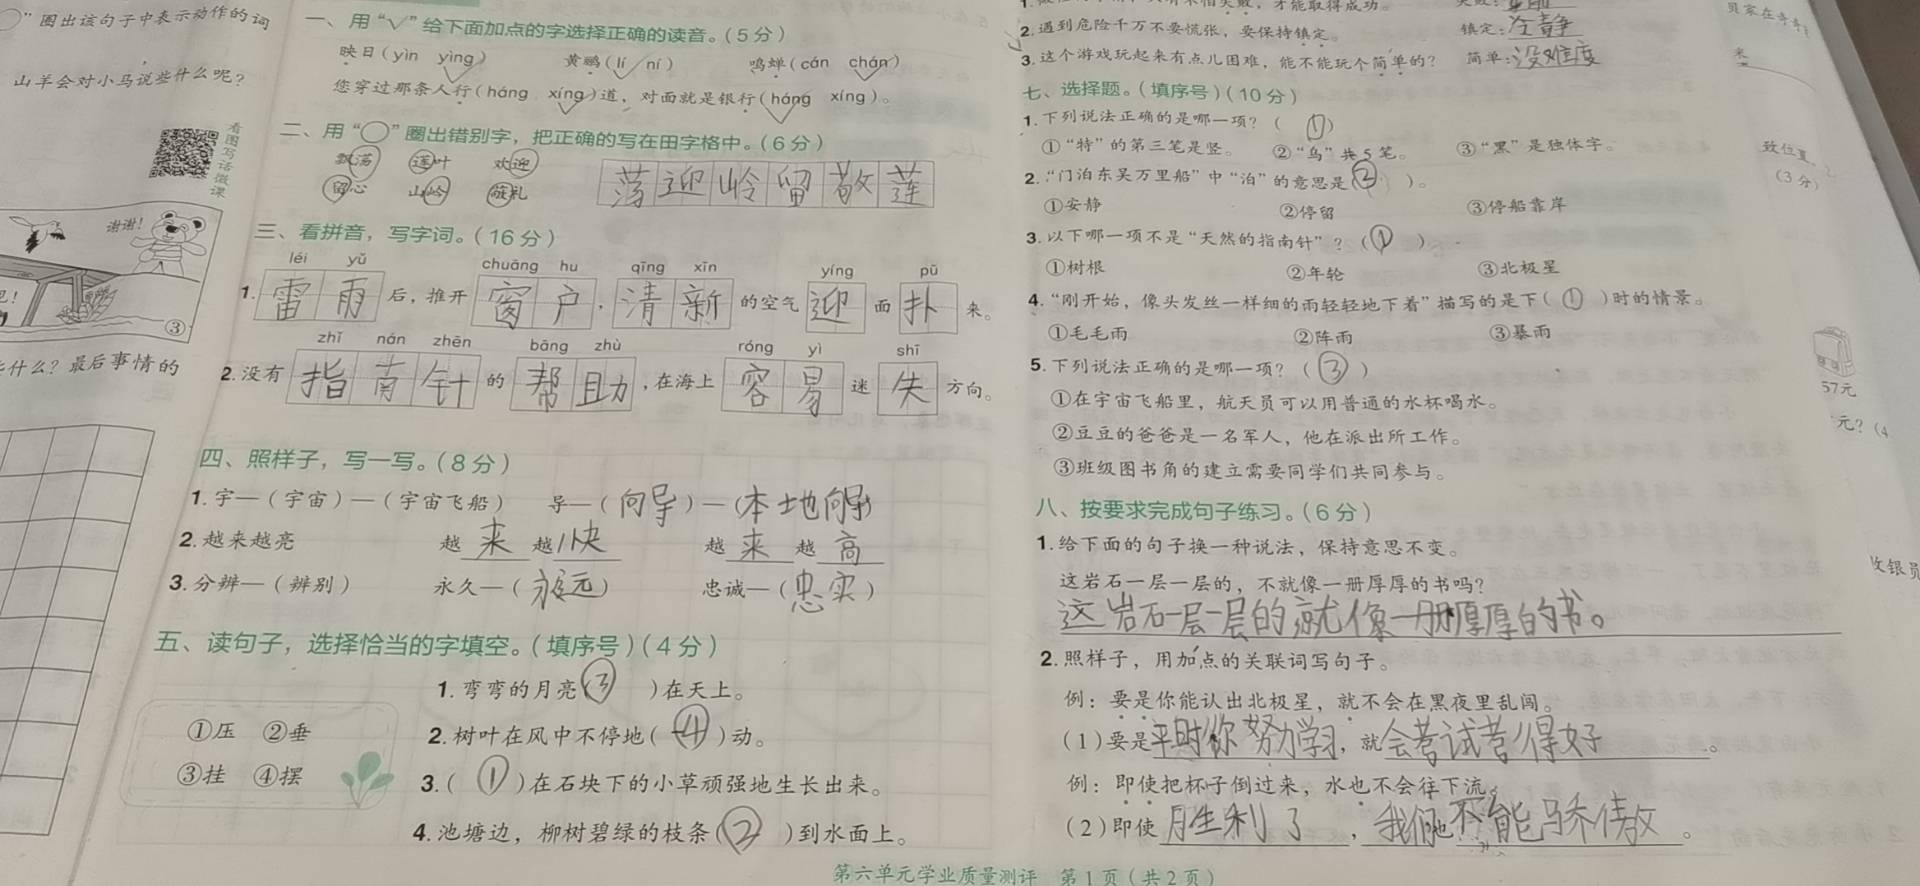 ”圈出该句子中表示动作的词
山羊会对小马说些什么呢？
看图写话微课
谢谢！
③
什么？最后事情的
一、用“√”给下面加点的字选择正确的读音。（5分）
映日（yìn yìng） 黄鹂（lí ní） 鸣蝉（cán chán）
您穿过那条人行（háng xíng）道，对面就是银行（háng xíng）。
二、用“○”圈出错别字，把正确的写在田字格中。（6分）
荡 迎 岭 留 敬 莲
三、看拼音，写字词。（16分）
léi yǔ chuāng hu qīng xīn yíng pū
1. 雷雨后，推开窗户，清新的空气迎面扑来。
zhǐ nán zhēn bāng zhù róng yì shī
2.没有指南针的帮助，在海上容易迷失方向。
四、照样子，写一写。（8分）
1.宇—（宇宙）—（宇宙飞船） 导—（向导）—（本地向导）
2.越来越亮 越来越快 越来越高
3.分辨—（辨别） 永久—（永远） 忠诚—（忠实）
五、读句子，选择恰当的字填空。（填序号）（4分）
①压 ②垂
③挂 ④摆
1.弯弯的月亮（③）在天上。
2.树叶在风中不停地（④）动。
3.（①）在石块下的小草顽强地生长出来。
4.池塘边，柳树碧绿的枝条（②）到水面上。
才能取得成功。
2.遇到危险千万不要慌张，要保持镇定。 镇定：冷静
3.这个游戏玩起来有点儿困难，能不能玩个简单的？ 简单：没难度
七、选择题。（填序号）（10分）
1.下列说法正确的是哪一项？（①）
①“特”的第三笔是竖。 ②“鸟”共5笔。 ③“黑”是独体字。
2.“门泊东吴万里船”中“泊”的意思是（②）。
①安静 ②停留 ③停船靠岸
3.以下哪一项不是“天然的指南针”？（①）
①树根 ②年轮 ③北极星
4.“刚开始，像头发丝一样细的雨轻轻地下着”描写的是下（①）时的情景。
①毛毛雨 ②阵雨 ③暴雨
5.下列说法正确的是哪一项？（③）
①在宇宙飞船里，航天员可以用普通的水杯喝水。
②豆豆的爸爸是一名军人，他在派出所工作。
③班级图书角的建立需要同学们共同参与。
八、按要求完成句子练习。（6分）
1.给下面的句子换一种说法，保持意思不变。
这岩石一层一层的，不就像一册厚厚的书吗？
这岩石一层一层的就像一册厚厚的书。
2.照样子，用加点的关联词写句子。
例：要是你能认出北极星，就不会在黑夜里乱闯。
（1）要是平时你努力学习，就会考试考得好。
例：即使把杯子倒过来，水也不会往下流。
（2）即使胜利了，我们也不能骄傲。
第六单元学业质量测评 第1页（共2页）
（3分）
57元
元？（4
收银员